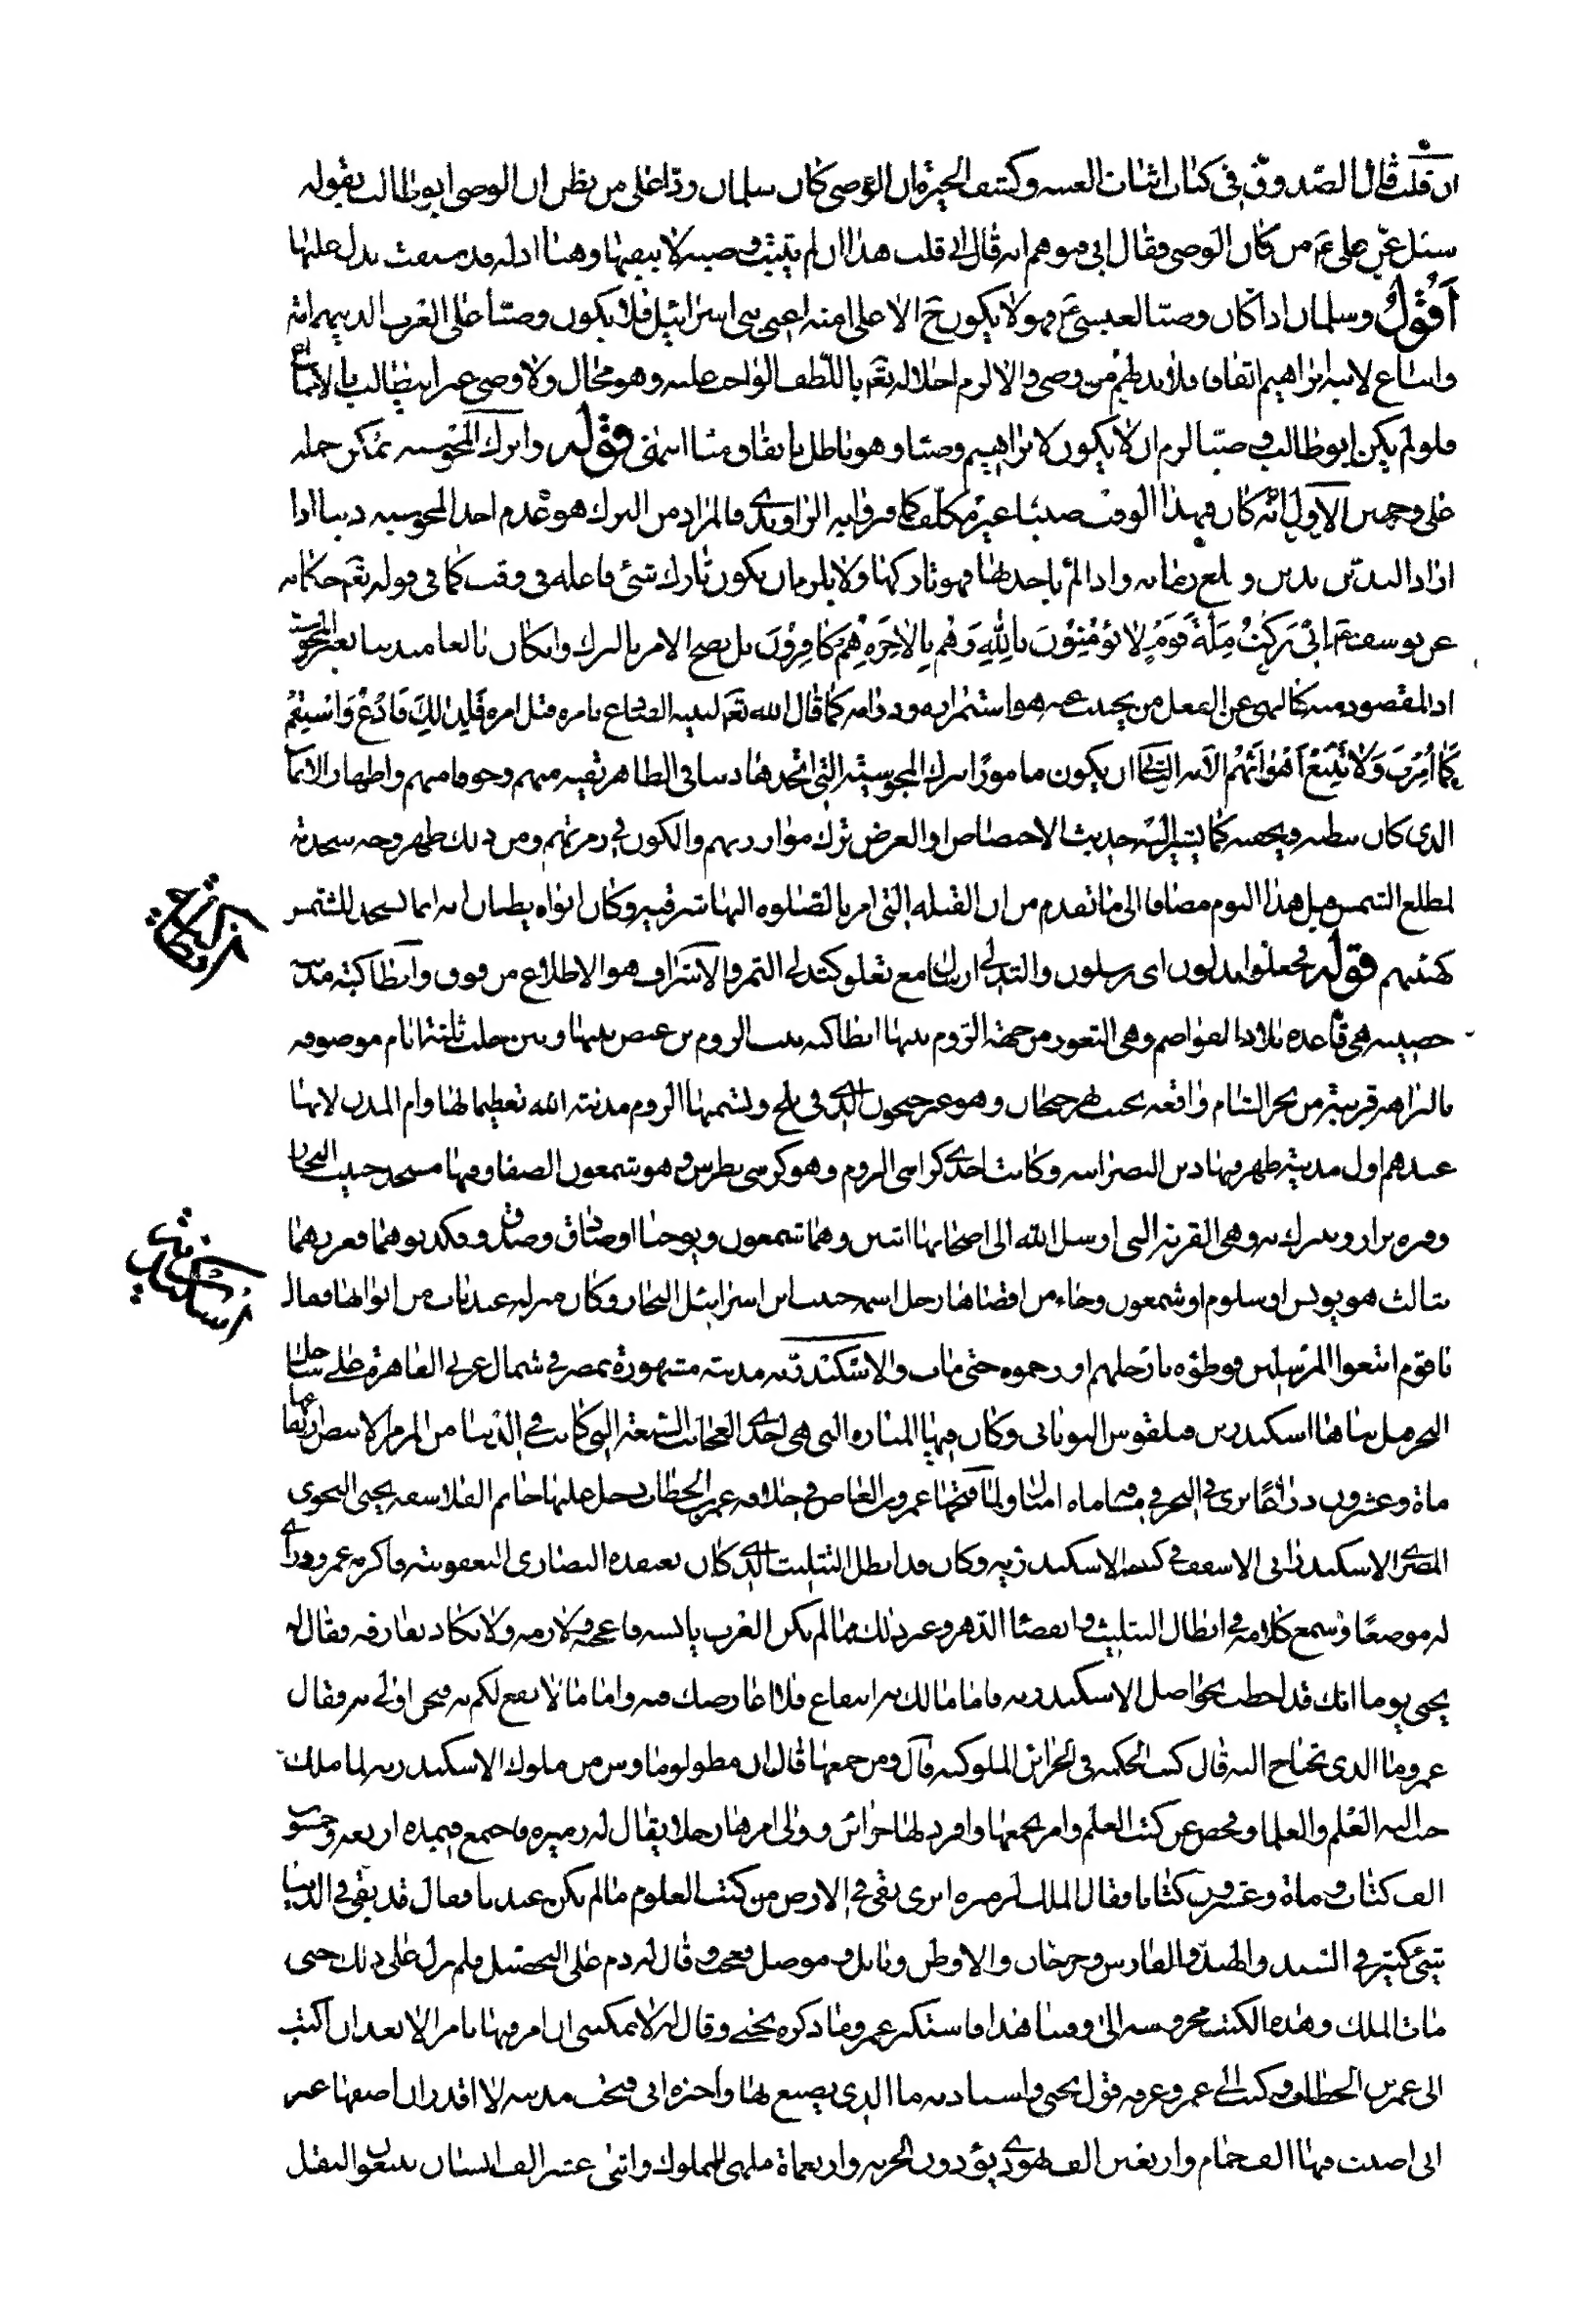 ان قلت قال الصدوق في كتاب اثبات الغيبه وكشف الحيرة ان الوصي كان سلمان ردا على من يظن ان الوصي ابو طالب بقوله
سئل عن علي ع من كان الوصي فقال ابي فهو وهم انه قال ابي قلت هذا ان لم يثبت وصيه لا ينفيها وهنا ادله قد سبقت يدل عليها
اقول وسلمان اذا كان وصيا لعيسى ع فهو لا يكون ح الا على امته اعني بني اسرائيل فلا يكون وصيا على العرب الذينهم امة
واتباع لابيه ابراهيم اتفاقا فلا بد لهم من وصي والا لزم اخلاله تعم باللطف الواجب عليه وهو محال ولا وصي غير ابيطالب بالاجماع
فلو لم يكن ابو طالب وصيا لزم ان لا يكون لابراهيم وصيا وهو باطل باتفاق منا انتهى قوله واترك المجوسيه يمكن حمله
على وجهين الاول انه كان فيهذا الوقت صبيا غير مكلف كما مر في ايه الراوندي فالمراد من الترك هو عدم اخذ المجوسيه دينا اذا
اراد التدين بدين وبلغ زمانه واذا لم ياخذها فهو تاركها ولا يلزم ان يكون تارك شئ فاعله في وقت كما في قوله تعم حكايه
عن يوسف ع اني تركت ملة قوم لا يؤمنون بالله وهم بالاخرة هم كافرون بل يصح الامر بالترك وان كان بالغا متدينا بغير المجوسيه
اذ المقصود منه كالنهي عن الفعل من يجتنب عنه هو استمراره ودوامه كما قال الله تعم لنبيه الصادع بامره ممتثل امره فلذلك فادع واستقم
كما امرت ولا تتبع اهواءهم الآيه الثاني ان يكون مامورا بترك المجوسية التي اتخذها دينا في الظاهر تقيه منهم وخوفا منهم واظهار الايمان
الذي كان يبطنه ويخفيه كما يشير اليه حديث الاختصاص او الغرض ترك مواردتهم والكون في زمرتهم ومن ذلك ظهر وجه سجدته
لمطلع الشمس قبل هذا اليوم مضافا الى ما تقدم من ان القبله التي امر بالصلوه اليها شرقيه وكان ابواه يظنان انه انما يسجد للشمس
كهيئتهم قوله فجعلوا يدلون اي يرسلون والتدلي ارسال مع تعلق كتدلي الثمر والاشراف هو الاطلاع من فوق وانطاكيه مدينه
حصينه هي قاعده بلاد العواصم وهي الثغور من جهة الروم بنتها انطاكيه بنت الروم بن عيص بينها وبين حلب ثلثة ايام موصوفه
بالنزاهه قريبة من بحر الشام واقعه بجنب نهر جيحان وهو غير جيحون الذي في بلخ ولتسميها الروم مدينة الله تعظيما لها وام المدن لانها
عندهم اول مدينة ظهر فيها دين النصرانيه وكانت احدى كراسي الروم وهو كرسي بطرس وهو شمعون الصفا وفيها مسجد حبيب النجار
وقبره يزار ويتبرك به وهي القرية التي ارسل الله الى اصحابها اثنين وهما شمعون ويوحنا او صادق وصدوق فكذبوهما فعززهما
بثالث هو بولس او سلوم او شمعون وجاء من اقصاها رجل اسمه حبيب ابن اسرائيل النجار وكان منزله عند باب من ابوابها فقال
يا قوم اتبعوا المرسلين فوطؤه بارجلهم او رجموه حتى مات والاسكندريه مدينه مشهورة بمصر في شمال غربي القاهرة على ساحل
البحر قيل بناها اسكندر بن فيلقوس اليوناني وكان فيها المناره التي هي احدى العجائب السبعة التي كانت في الدنيا من المرمر الابيض ارتفاعها
مأة وعشرون ذراعا يرى في البحر في مسافه ماه اميال ولما فتحها عمرو بن العاص في خلافه عمر بن الخطاب دخل عليها خاتم الفلاسفه يحيى النحوي
المصري الاسكندراني الاسقف في كنيسة الاسكندريه وكان قد ابطل التثليث الذي كان يعتقده النصارى اليعقوبيه فاكرمه عمرو وراى
له موضعا وسمع كلامه في ابطال التثليث وانقضاء الدهر وغير ذلك مما لم يكن العرب يانسه فاعجبه ولازمه ولا يكاد يفارقه فقال له
يحيى يوما انك قد احطت بحواصل الاسكندريه فاما ما لك به انتفاع فلا اعارضك فيه واما ما لا نفع لكم به فنحن اولى به فقال
عمرو ما الذي تحتاج اليه قال كتب الحكمه في الخزائن الملوكيه قال ومن جمعها قال ان بطولوماوس من ملوك الاسكندريه لما ملك
حبب اليه العلم والعلما وفحص عن كتب العلم وامر بجمعها وافرد لها خزائن وولى امرها رجلا يقال له زميره فاجتمع فيمده اربعه وخمسون
الف كتاب ومأة وعشرون كتابا فقال الملك لزميره اترى بقي في الارض من كتب العلوم ما لم يكن عندنا فقال قد بقي في الدنيا
شئ كثير في السند والهند والفارس وجرجان والاوطن وبابل وموصل فعجب وقال له دم على التحصيل فلم يزل على ذلك حتى
مات الملك وهذه الكتب محروسه الى وقتنا هذا فاستكثر عمرو ما ذكره يحيى وقال له لا يمكنني ان امر فيها بامر الا بعد ان اكتب
الى عمر بن الخطاب فكتب الى عمر وعرفه قول يحيى واستاذنه ما الذي يصنع لها واخبره اني فتحت مدينه لا اقدر ان اصفها غير
اني اصبت فيها الف حمام واربعين الف يهودي يؤدون الجزيه واربعمأة ملهى للملوك واثنى عشر الف بستان يبيعون البقل
انطاكيه
اسكندريه